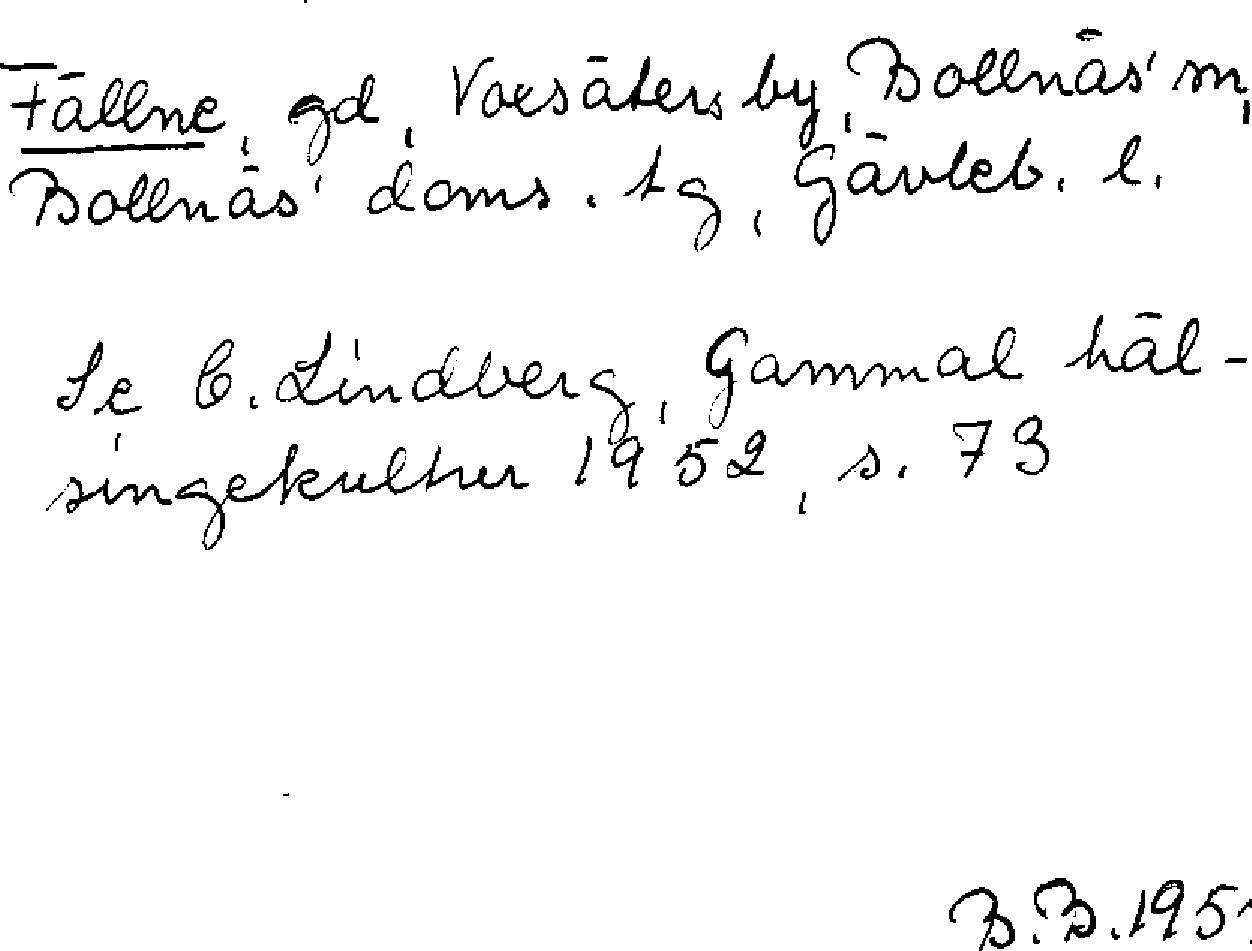 Fällne, gd, Voxsäters by, Bollnäs' sn,
Bollnäs' doms. tg, Gävleb. l.
Se C. Lindberg, Gammal häl-
singekultur 1952, s. 73
B.B.195